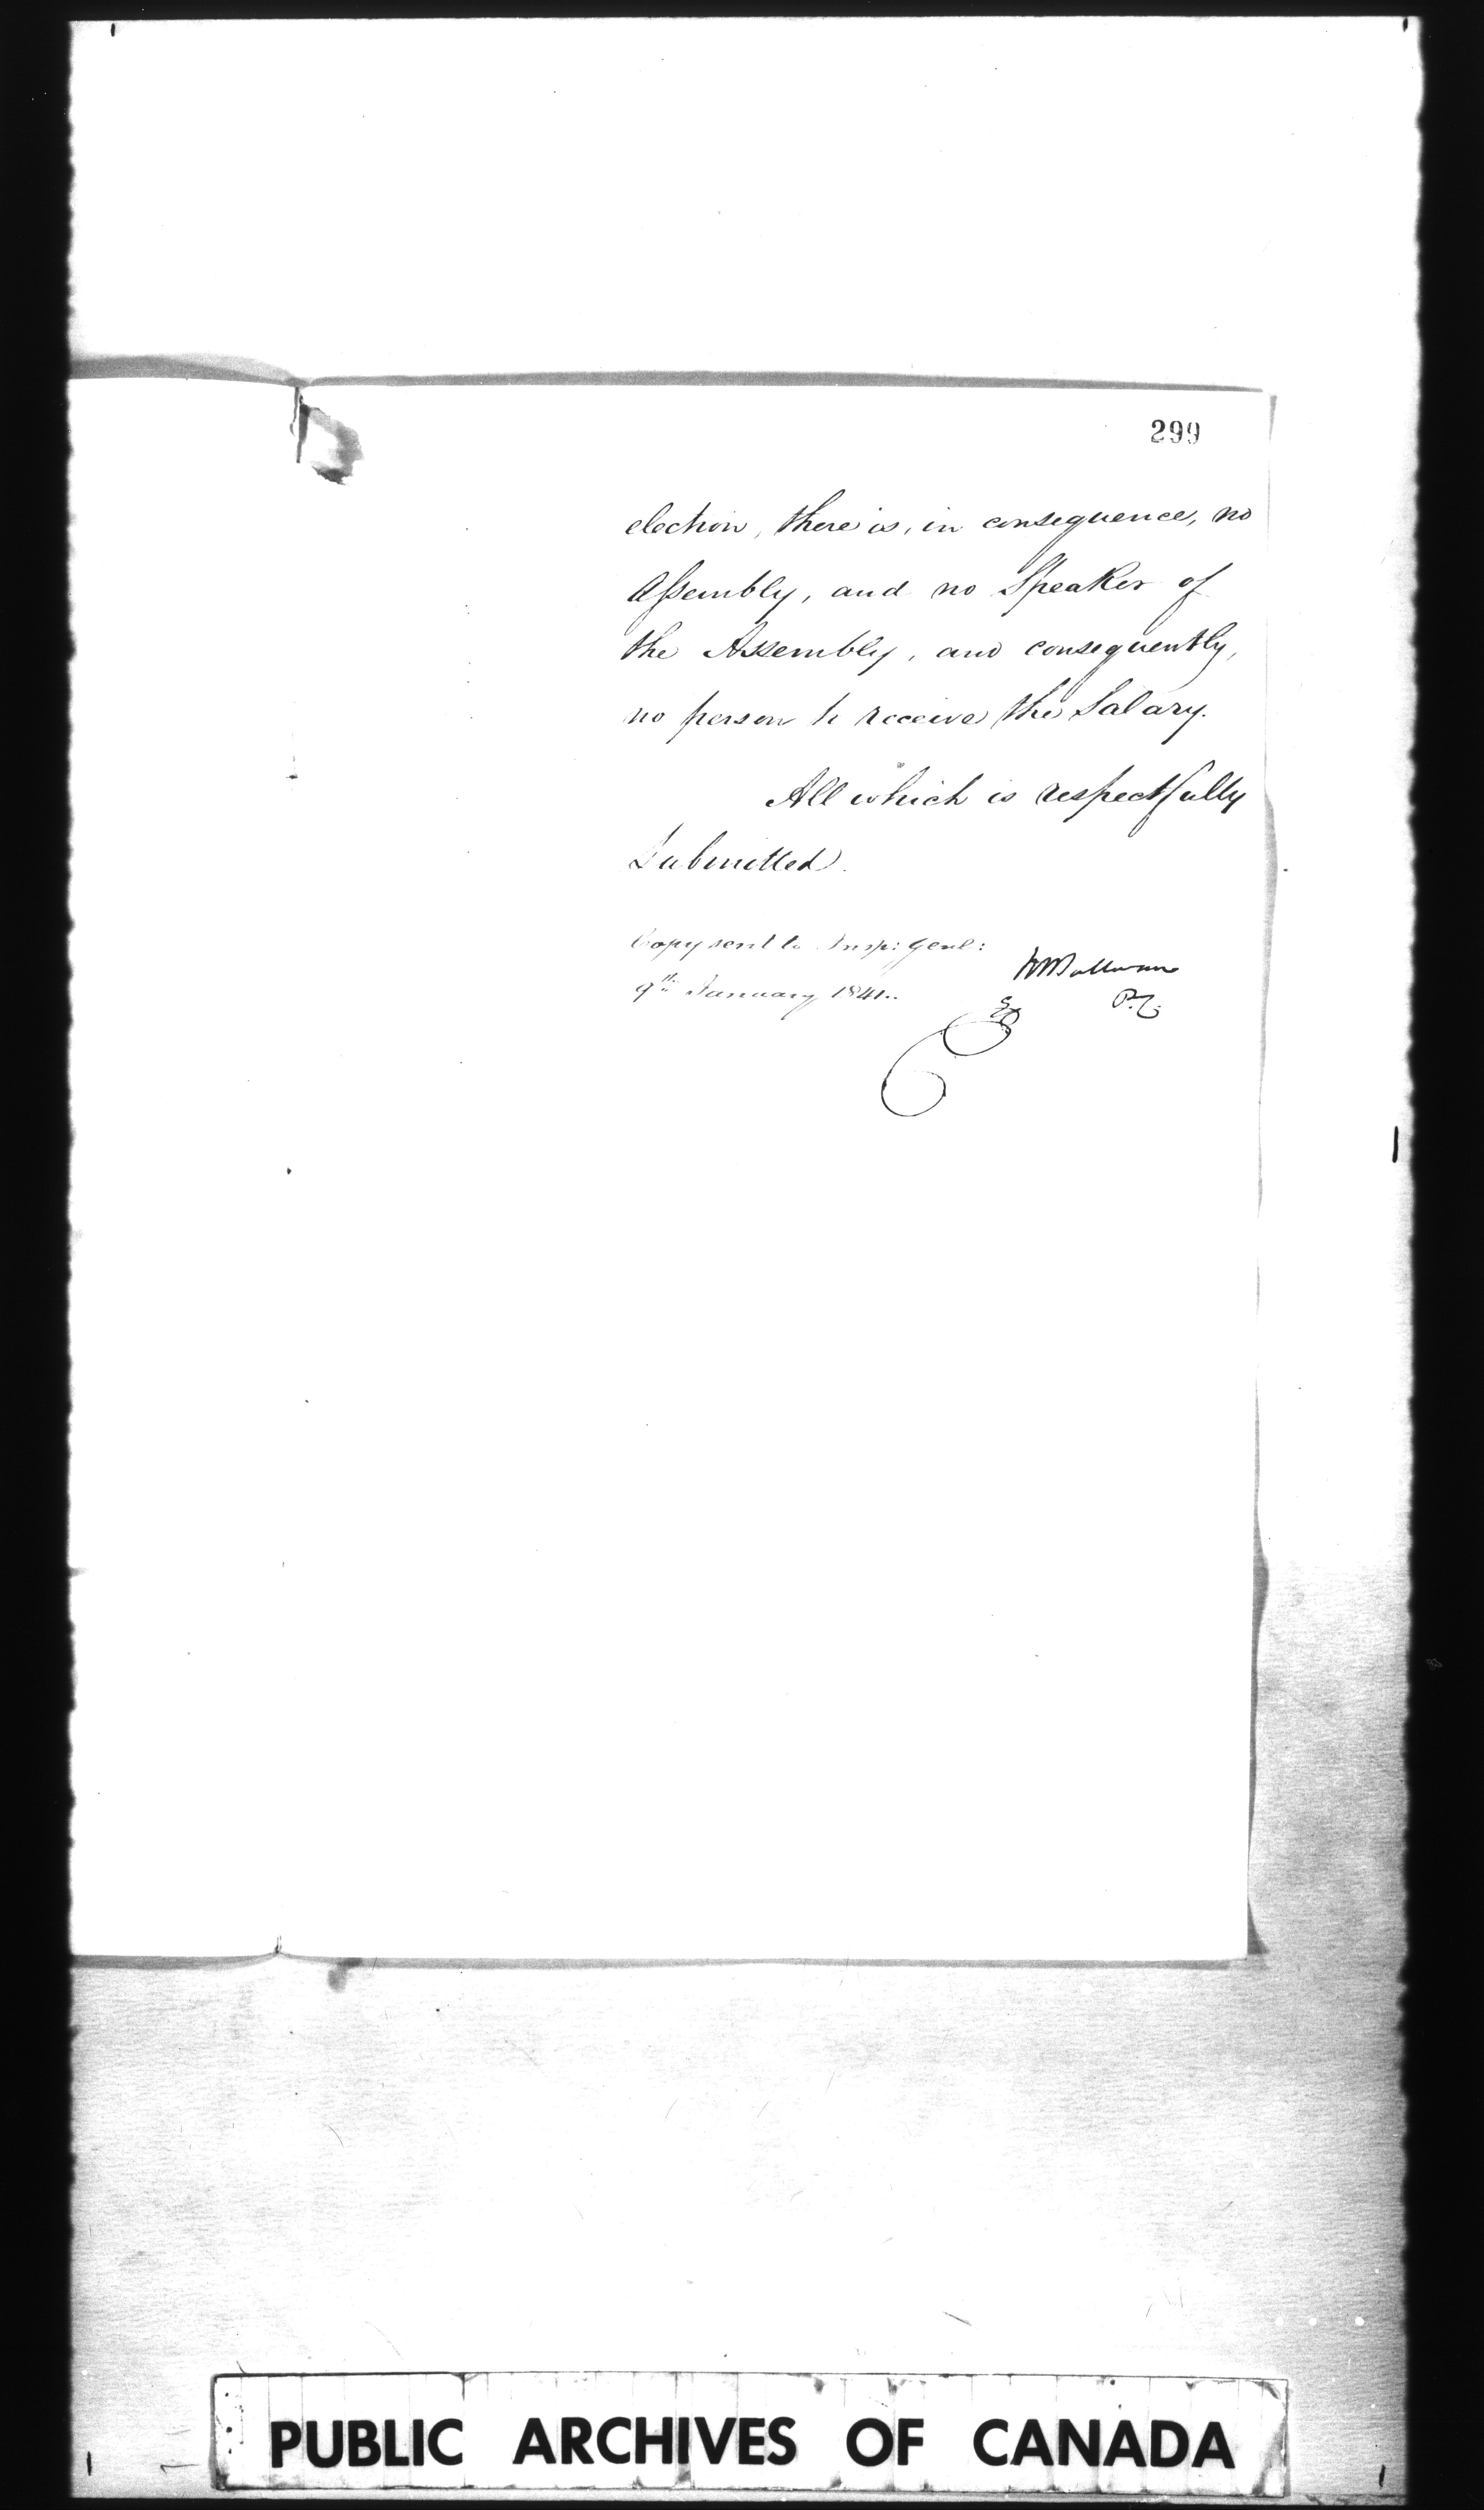 299
election, there is, in consequence, no
Assembly, and no Speaker of
the Assembly, and consequently,
no person to receive the Salary.
All which is respectfully
Submitted.
Copy sent to Insp: Genl:
9th January 1841..
PUBLIC ARCHIVES OF CANADA